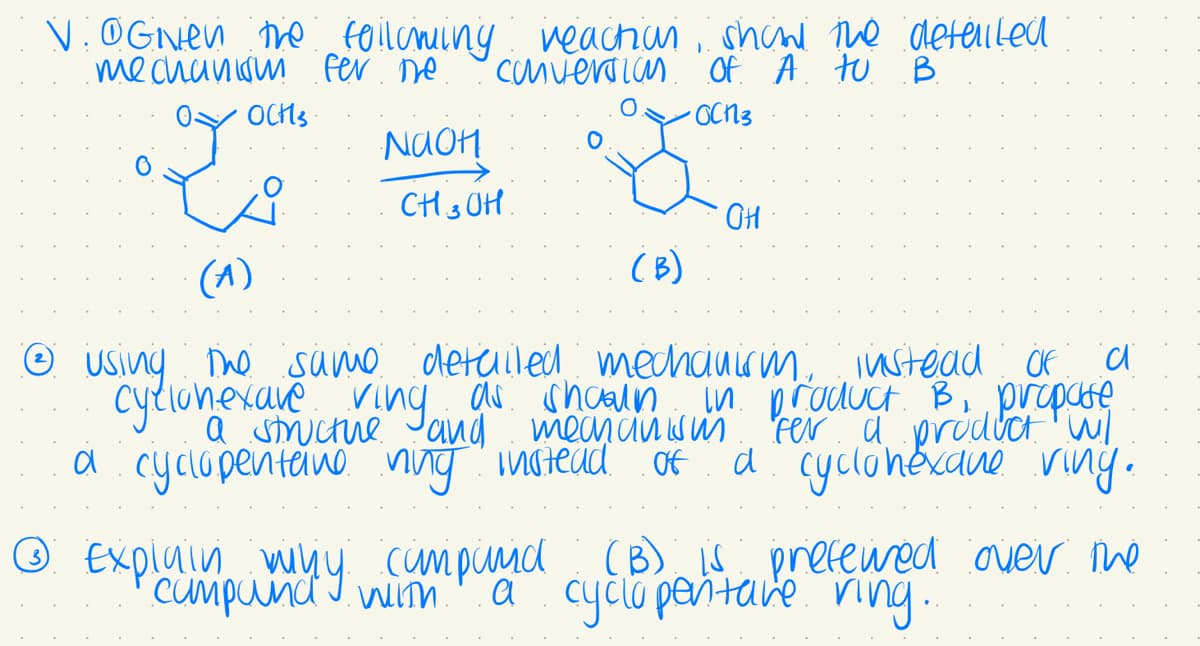 V. ① Given the following reaction, show the detailed
mechanism for the conversion of A to B
O OCH3 O OCH3
NaOH
O O O
CH3OH
OH
(A) (B)
② using the same detailed mechanism, instead of a
cyclohexane ring as shown in product B, propose
a structure and mechanism for a product w/
a cyclopentane ring instead of a cyclohexane ring.
③ Explain why compound (B) is preferred over the
compound with a cyclopentane ring.